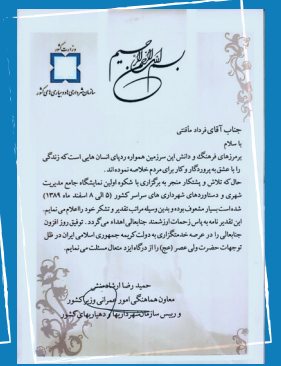 وزارت کشور
سازمان شهرداری ها و دهیاری های کشور
بسم الله الرحمن الرحیم
جناب آقای فرداد مأفتنی
با سلام
بر مرزهای فرهنگ و دانش این سرزمین همواره ردپای انسان هایی است که زندگی
را با عشق به پروردگار و کار برای مردم خلاصه نموده اند.
حال که تلاش و پشتکار منجر به برگزاری با شکوه اولین نمایشگاه جامع مدیریت
شهری و دستاوردهای شهرداری های سراسر کشور (۵ الی ۸ اسفند ماه ۱۳۸۹)
شده است بسیار مشعوف بوده و بدین وسیله مراتب تقدیر و تشکر خود را اعلام می نمایم.
این تقدیر نامه به پاس زحمات ارزشمند جنابعالی اهداء می گردد. توفیق روز افزون
جنابعالی را در عرصه خدمتگزاری به دولت کریمه جمهوری اسلامی ایران در ظل
توجهات حضرت ولی عصر (عج) را از درگاه ایزد متعال مسئلت می نمایم.
حمید رضا ارشادمنشی
معاون هماهنگی امور عمرانی وزیر کشور
و رییس سازمان شهرداریها و دهیاریهای کشور